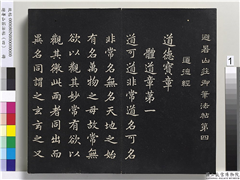 避暑山莊御筆法帖第四
道德經
道德寶章
體道章第一
道可道非常道名可名
非常名無名天地之始
有名萬物之母故常無
欲以觀其妙常有欲以
觀其徼此兩者同出而
異名同謂之玄玄之又
1